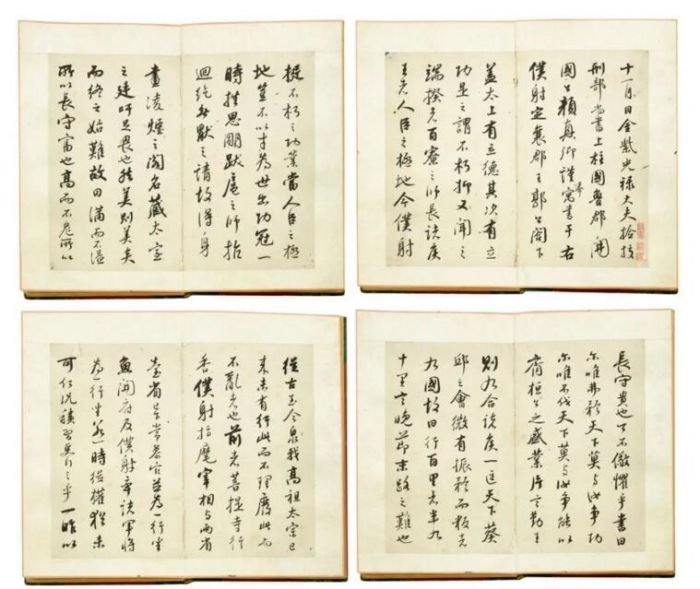 十一月日金紫光祿大夫撿挍
刑部尚書上柱國魯郡開
國公顏真卿謹寓書于右
僕射定襄郡王郭公閤下
蓋太上有立德其次有立
功是之謂不朽抑又聞之
端揆者百寮之師長諸侯
王者人臣之極地今僕射
挺不朽之功業當人臣之極
地豈不以才為世出功冠一
時挫思明跋扈之師抗
迴紇無厭之請故得身
畫凌煙之閣名藏太室
之廷吁足畏也然美則美矣
而終之始難故曰滿而不溢
所以長守富也高而不危所以
長守貴也可不儆懼乎書曰
爾唯弗矜天下莫與汝爭功
爾唯不伐天下莫與汝爭能以
齊桓公之盛業片言勤王
則九合諸侯一匡天下葵
邱之會微有振矜而叛者
九國故曰行百里者半九
十里言晚節末路之難也
從古至今泉我高祖太宗已
來未有行此而不理廢此而
不亂者也前者菩提寺行
香僕射指麾宰相與兩省
臺省已下常參官並為一行坐
魚開府及僕射率諸軍將
為一行坐若一時從權猶未
可何況積習更行之乎一昨以